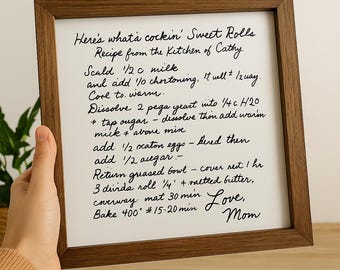 Here's what's cockin' Sweet Rolls
Recipe from the Kitchen of Cathy
Scald ½ c milk
and add ⅓ chortoning, it well ½ way.
Cool to warm.
Dissolve 2 pega yeast into ¼ c H20
+ tap sugar – dissolve thou add warm
milk + above mix
add ½ oxaton eggs – Bered then
add ½ augar –
Return greased bowl – cover rest 1 hr
3 divida roll ¼" + mettod butter,
coverway mat 30 min
Bake 400° # 15-20 min
Love,
Mom